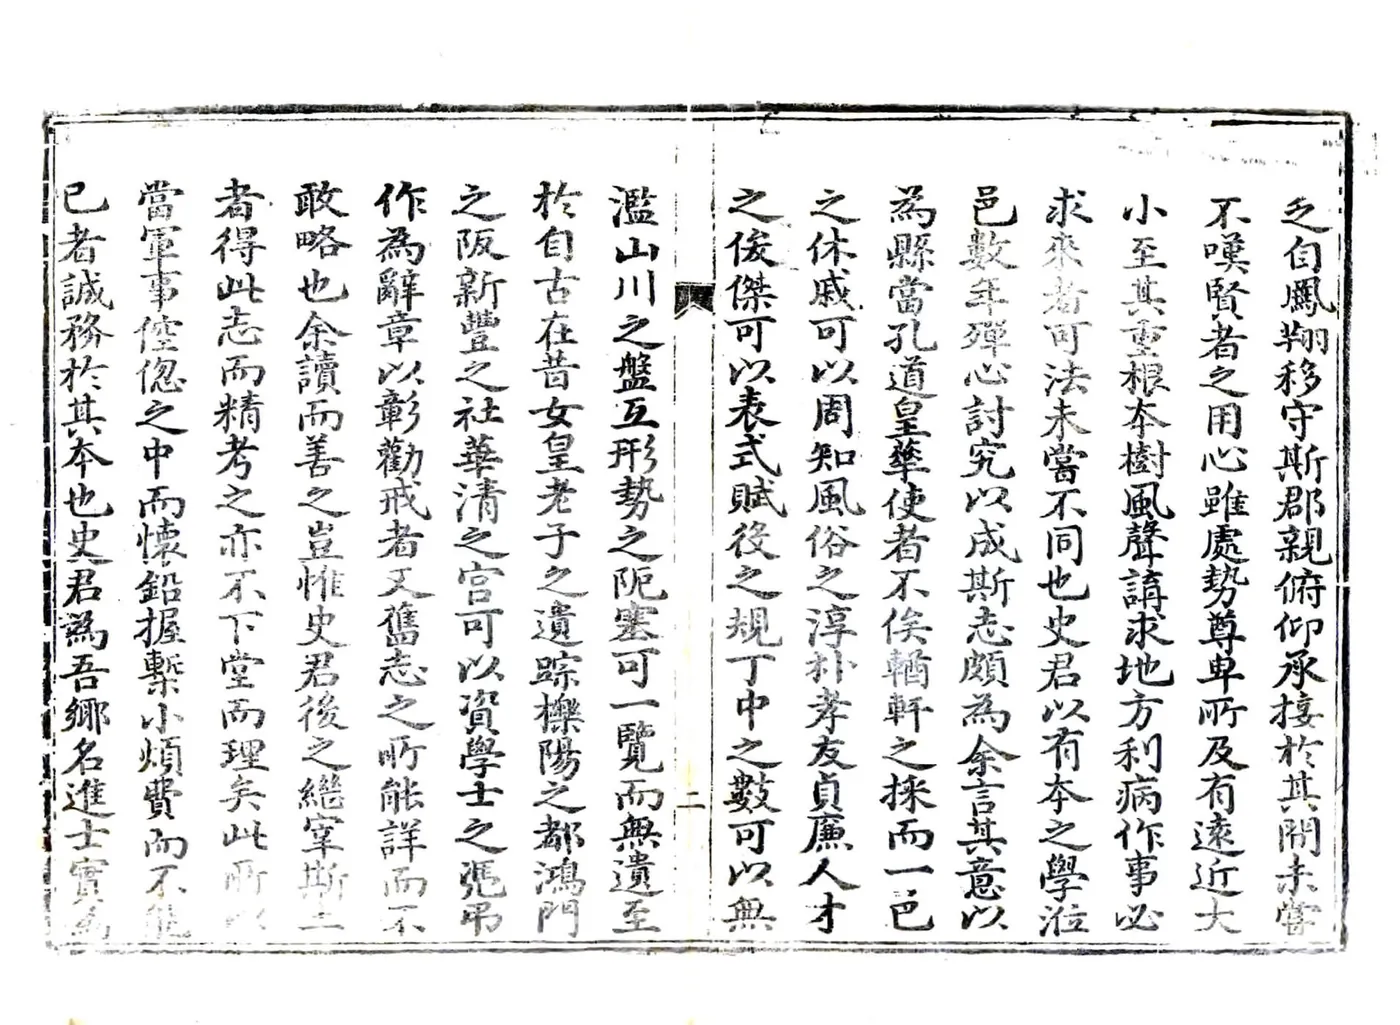 乏自鳳翔移守斯郡親俯仰承接於其閒未嘗
不嘆賢者之用心雖處勢尊卑所及有遠近大
小至其重根本樹風聲講求地方利病作事必
求來者可法未嘗不同也史君以有本之學涖
邑數年殫心討究以成斯志頗為余言其意以
為縣當孔道皇華使者不俟輶軒之採而一邑
之休戚可以周知風俗之淳朴孝友貞廉人才
之俊傑可以表式賦役之規丁中之數可以無
二
濫山川之盤互形勢之阨塞可一覽而無遺至
於自古在昔女皇老子之遺踪櫟陽之都鴻門
之阪新豐之社華清之宮可以資學士之憑弔
作為辭章以彰勸戒者又舊志之所能詳而不
敢略也余讀而善之豈惟史君後之繼宰斯土
者得此志而精考之亦不下堂而理矣此所以
當軍事倥傯之中而懷鉛握槧小煩費而不能
已者誠務於其本也史君為吾鄉名進士實為